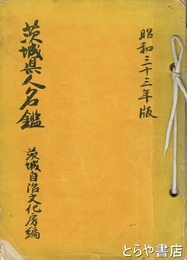 昭和三十三年版
茨城県人名鑑
茨城自治文化房編
とらや書店